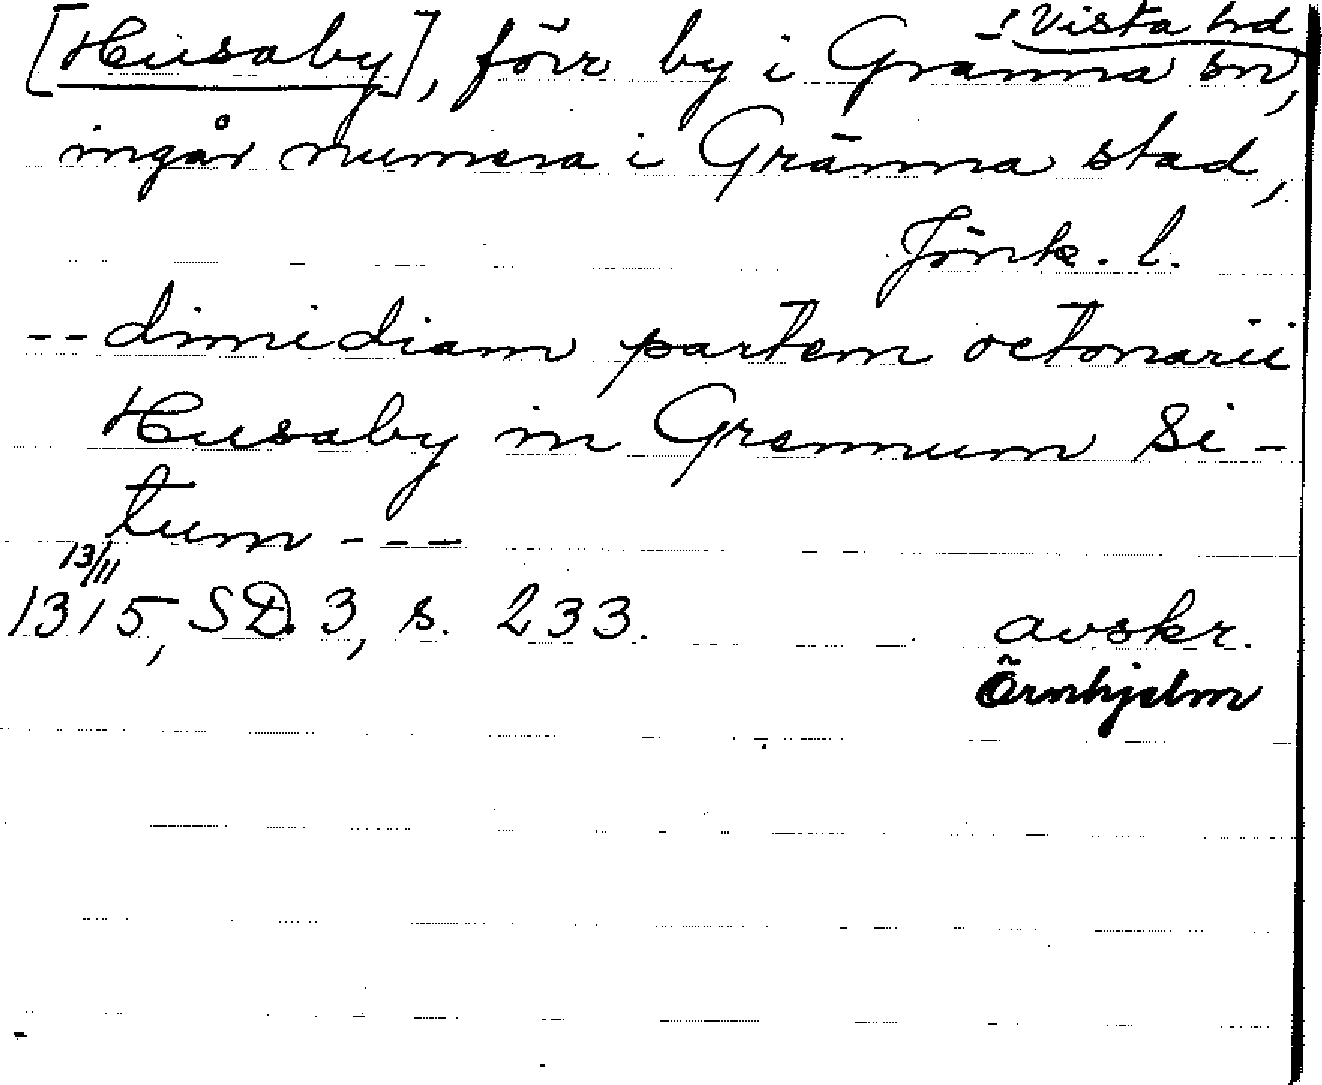 Vista hd
[Husaby], förr by i Gränna sn,
ingår numera i Gränna stad,
Jönk. l.
-- dimidiam partem octonarii
Husaby in Grennum si-
tum ---
13/11
1315, SD 3, s. 233. avskr.
Örnhjelm